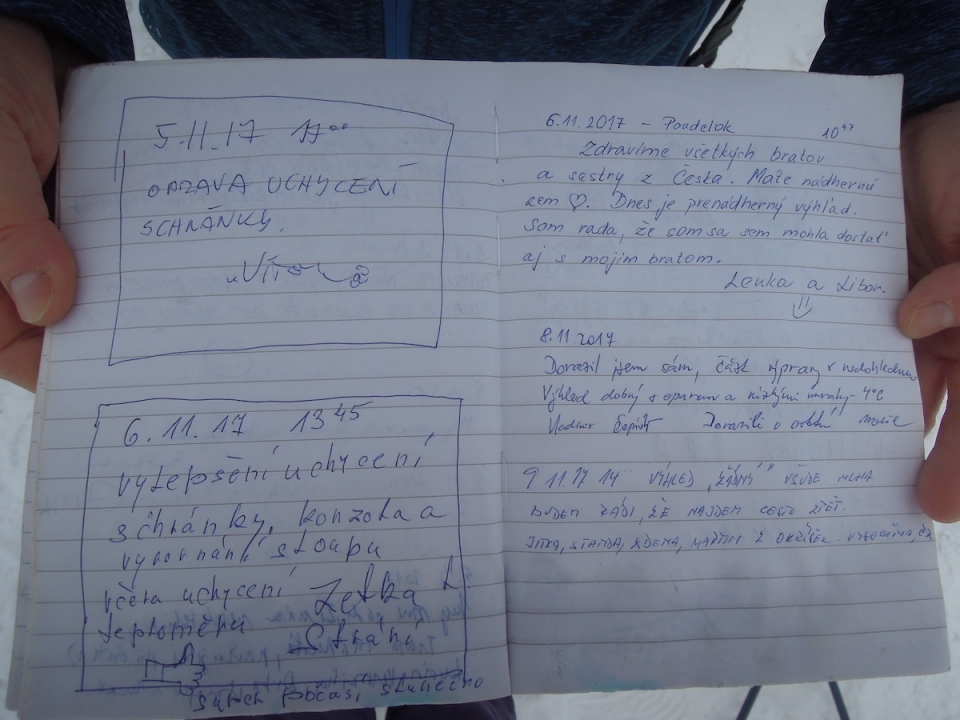 5.11.17 17⁰⁰
OPRAVA UCHYCENÍ
SCHRÁNKY.
6.11.17 13⁴⁵
vylepšení uchycení
schránky, konzola a
vyrovnání sloupu
včera uchycení
teploměru
počasí slunečno
6.11.2017 - Pondelok 10⁴⁷
Zdravíme všetkých bratov
a sestry z Česka. Máte nádhernú
zem ♡. Dnes je prenádherný výhľad.
Som rada, že som sa sem mohla dostať
aj s mojim bratom.
Lenka a Libor.
8.11.2017
Dorazil jsem sám, část výpravy v nedohlednu
Výhled dobrý s oparem a nízkými mraky - 4°C
Dorazili o
9 11.17 14 VÝHLED „ŽÁDNÝ" VŠUDE MLHA
BUDEM RÁDI, ŽE NAJDEM CESTU ZPĚT.
JITKA, STANDA, ZDENA, MARTIN Z OKŘÍŠEK VYSOČINA, ČR